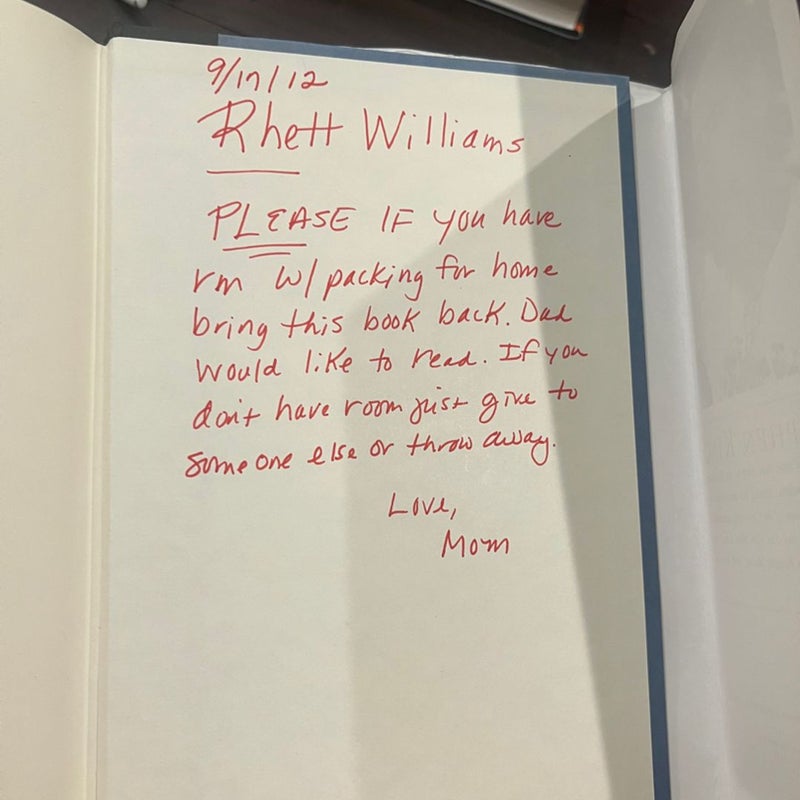 9/17/12
Rhett Williams
PLEASE IF you have
rm w/ packing for home
bring this book back. Dad
would like to read. If you
don't have room just give to
someone else or throw away.
Love,
Mom